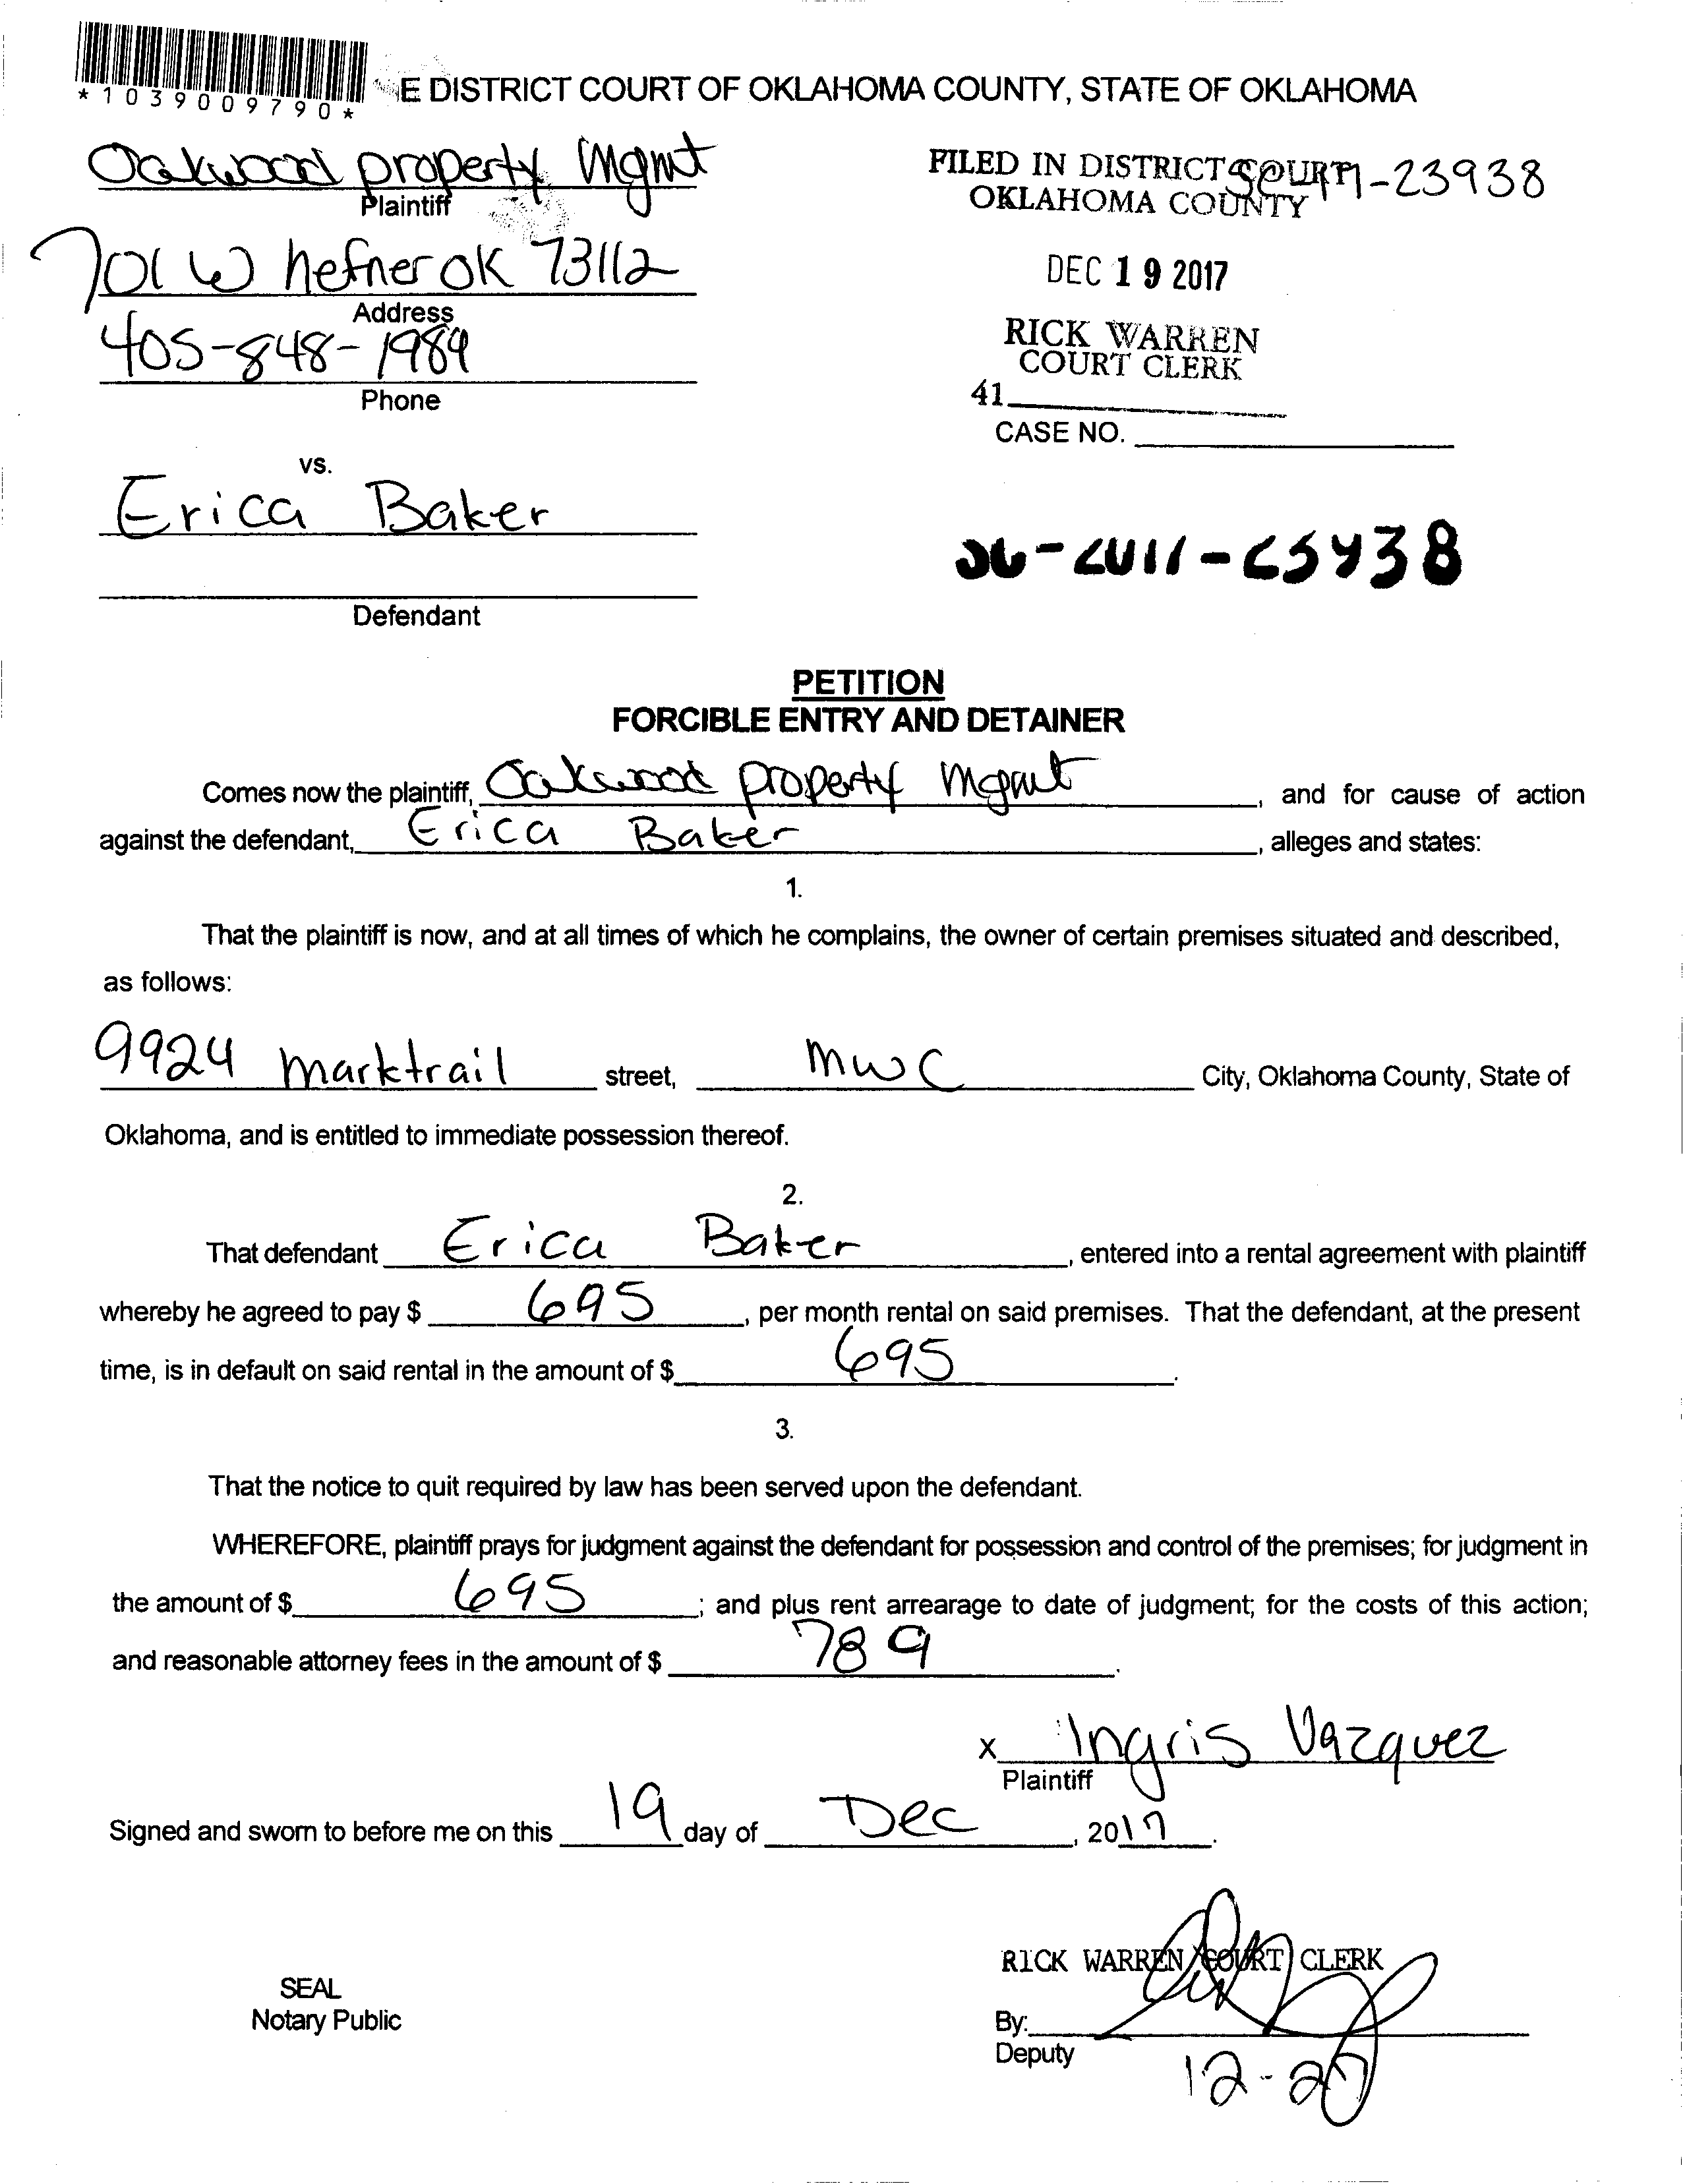 *1039009790*
E DISTRICT COURT OF OKLAHOMA COUNTY, STATE OF OKLAHOMA
Oakwood property Mgmt
Plaintiff
FILED IN DISTRICT COURT
-23938
OKLAHOMA COUNTY
701 W hefner OK 73112
Address
DEC 19 2017
405-848-1989
Phone
RICK WARREN
COURT CLERK
41
CASE NO.
vs.
Erica Baker
Defendant
PETITION
FORCIBLE ENTRY AND DETAINER
Comes now the plaintiff, Oakwood property Mgmt, and for cause of action
against the defendant, Erica Baker, alleges and states:
1.
That the plaintiff is now, and at all times of which he complains, the owner of certain premises situated and described,
as follows:
9924 marktrail street, MWC City, Oklahoma County, State of
Oklahoma, and is entitled to immediate possession thereof.
2.
That defendant Erica Baker, entered into a rental agreement with plaintiff
whereby he agreed to pay $ 695, per month rental on said premises. That the defendant, at the present
time, is in default on said rental in the amount of $ 695.
3.
That the notice to quit required by law has been served upon the defendant.
WHEREFORE, plaintiff prays for judgment against the defendant for possession and control of the premises; for judgment in
the amount of $ 695; and plus rent arrearage to date of judgment; for the costs of this action;
and reasonable attorney fees in the amount of $ 789.
x Ingris Vazquez
Plaintiff
Signed and sworn to before me on this 19 day of Dec, 2017.
RICK WARREN COURT CLERK
SEAL
Notary Public
By:
Deputy
12-27